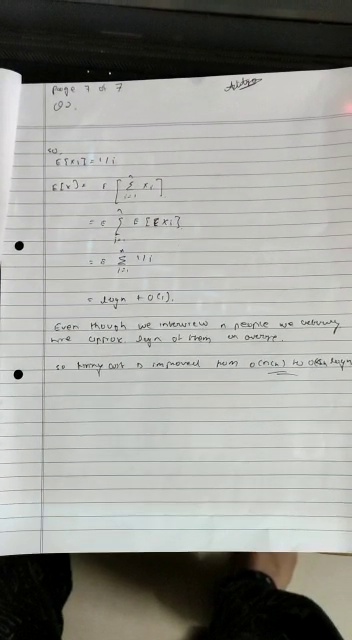 Page 7 of 7
Q2.
so,
E[xi] = 1/i
E[x] = E [ n Σ i=1 xi ]
= E n Σ i=1 E[E xi]
= E n Σ i=1 1/i
= logn + O(1).
Even though we interview n people we
hire approx. logn of them on average.
so hiring cost is improved from O(nCh) to logn